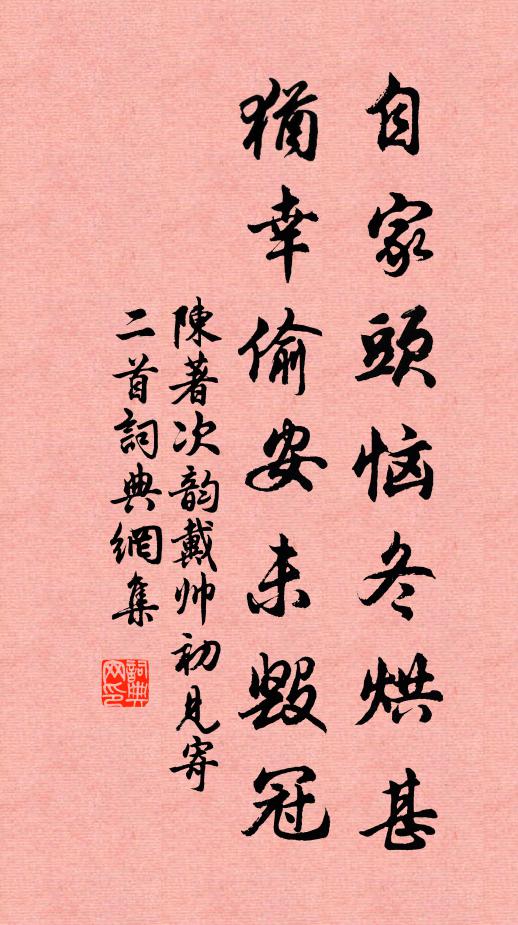 自家頭恼冬烘甚
猶幸偷安未毀冠
陳著次韵戴帅初見寄
二首詞典網集
詞典网印